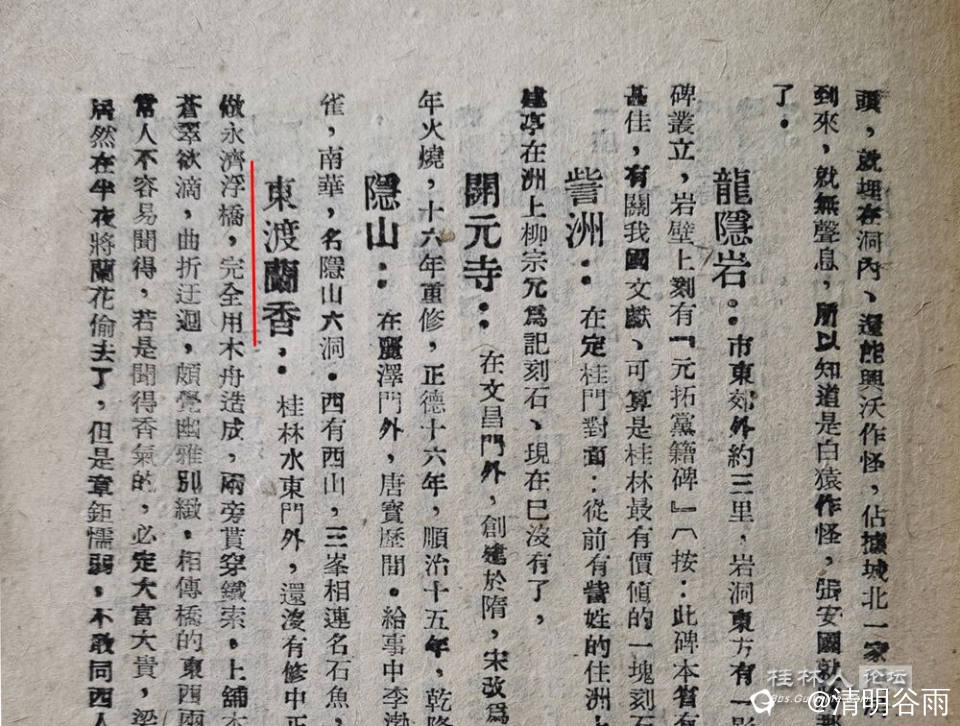 頭，就埋在洞內、還能興沃作怪，佔據城北一家
到來，就無聲息，所以知道是白猿作怪，張安國就
了。
龍隱岩：市東郊外約三里，岩洞東方有一
碑叢立，岩壁上刻有『元拓黨籍碑』（按：此碑本省有
甚佳，有關我國文獻、可算是桂林最有價值的一塊刻石
訾洲：在定桂門對面：從前有訾姓的住洲上
建亭在洲上柳宗元爲記刻石、現在已沒有了，
開元寺：在文昌門外，創建於隋，宋改爲
年火燒，十六年重修，正德十六年，順治十五年，乾隆
隱山：在麗澤門外，唐寶歷間。給事中李渤
雀，南華，名隱山六洞。西有西山，三峯相連名石魚，
東渡蘭香：桂林水東門外，還沒有修中正
做永濟浮橋，完全用木舟造成，兩旁貫穿鐵索。上舖木
蒼翠欲滴，曲折迂迴，頗覺幽雅別緻。相傳橋的東西兩
常人不容易聞得，若是聞得香氣的，必定大富大貴，梁
居然在半夜將蘭花偷去了，但是章鉅懦弱，不敢同西人
桂林人论坛
@清明谷雨